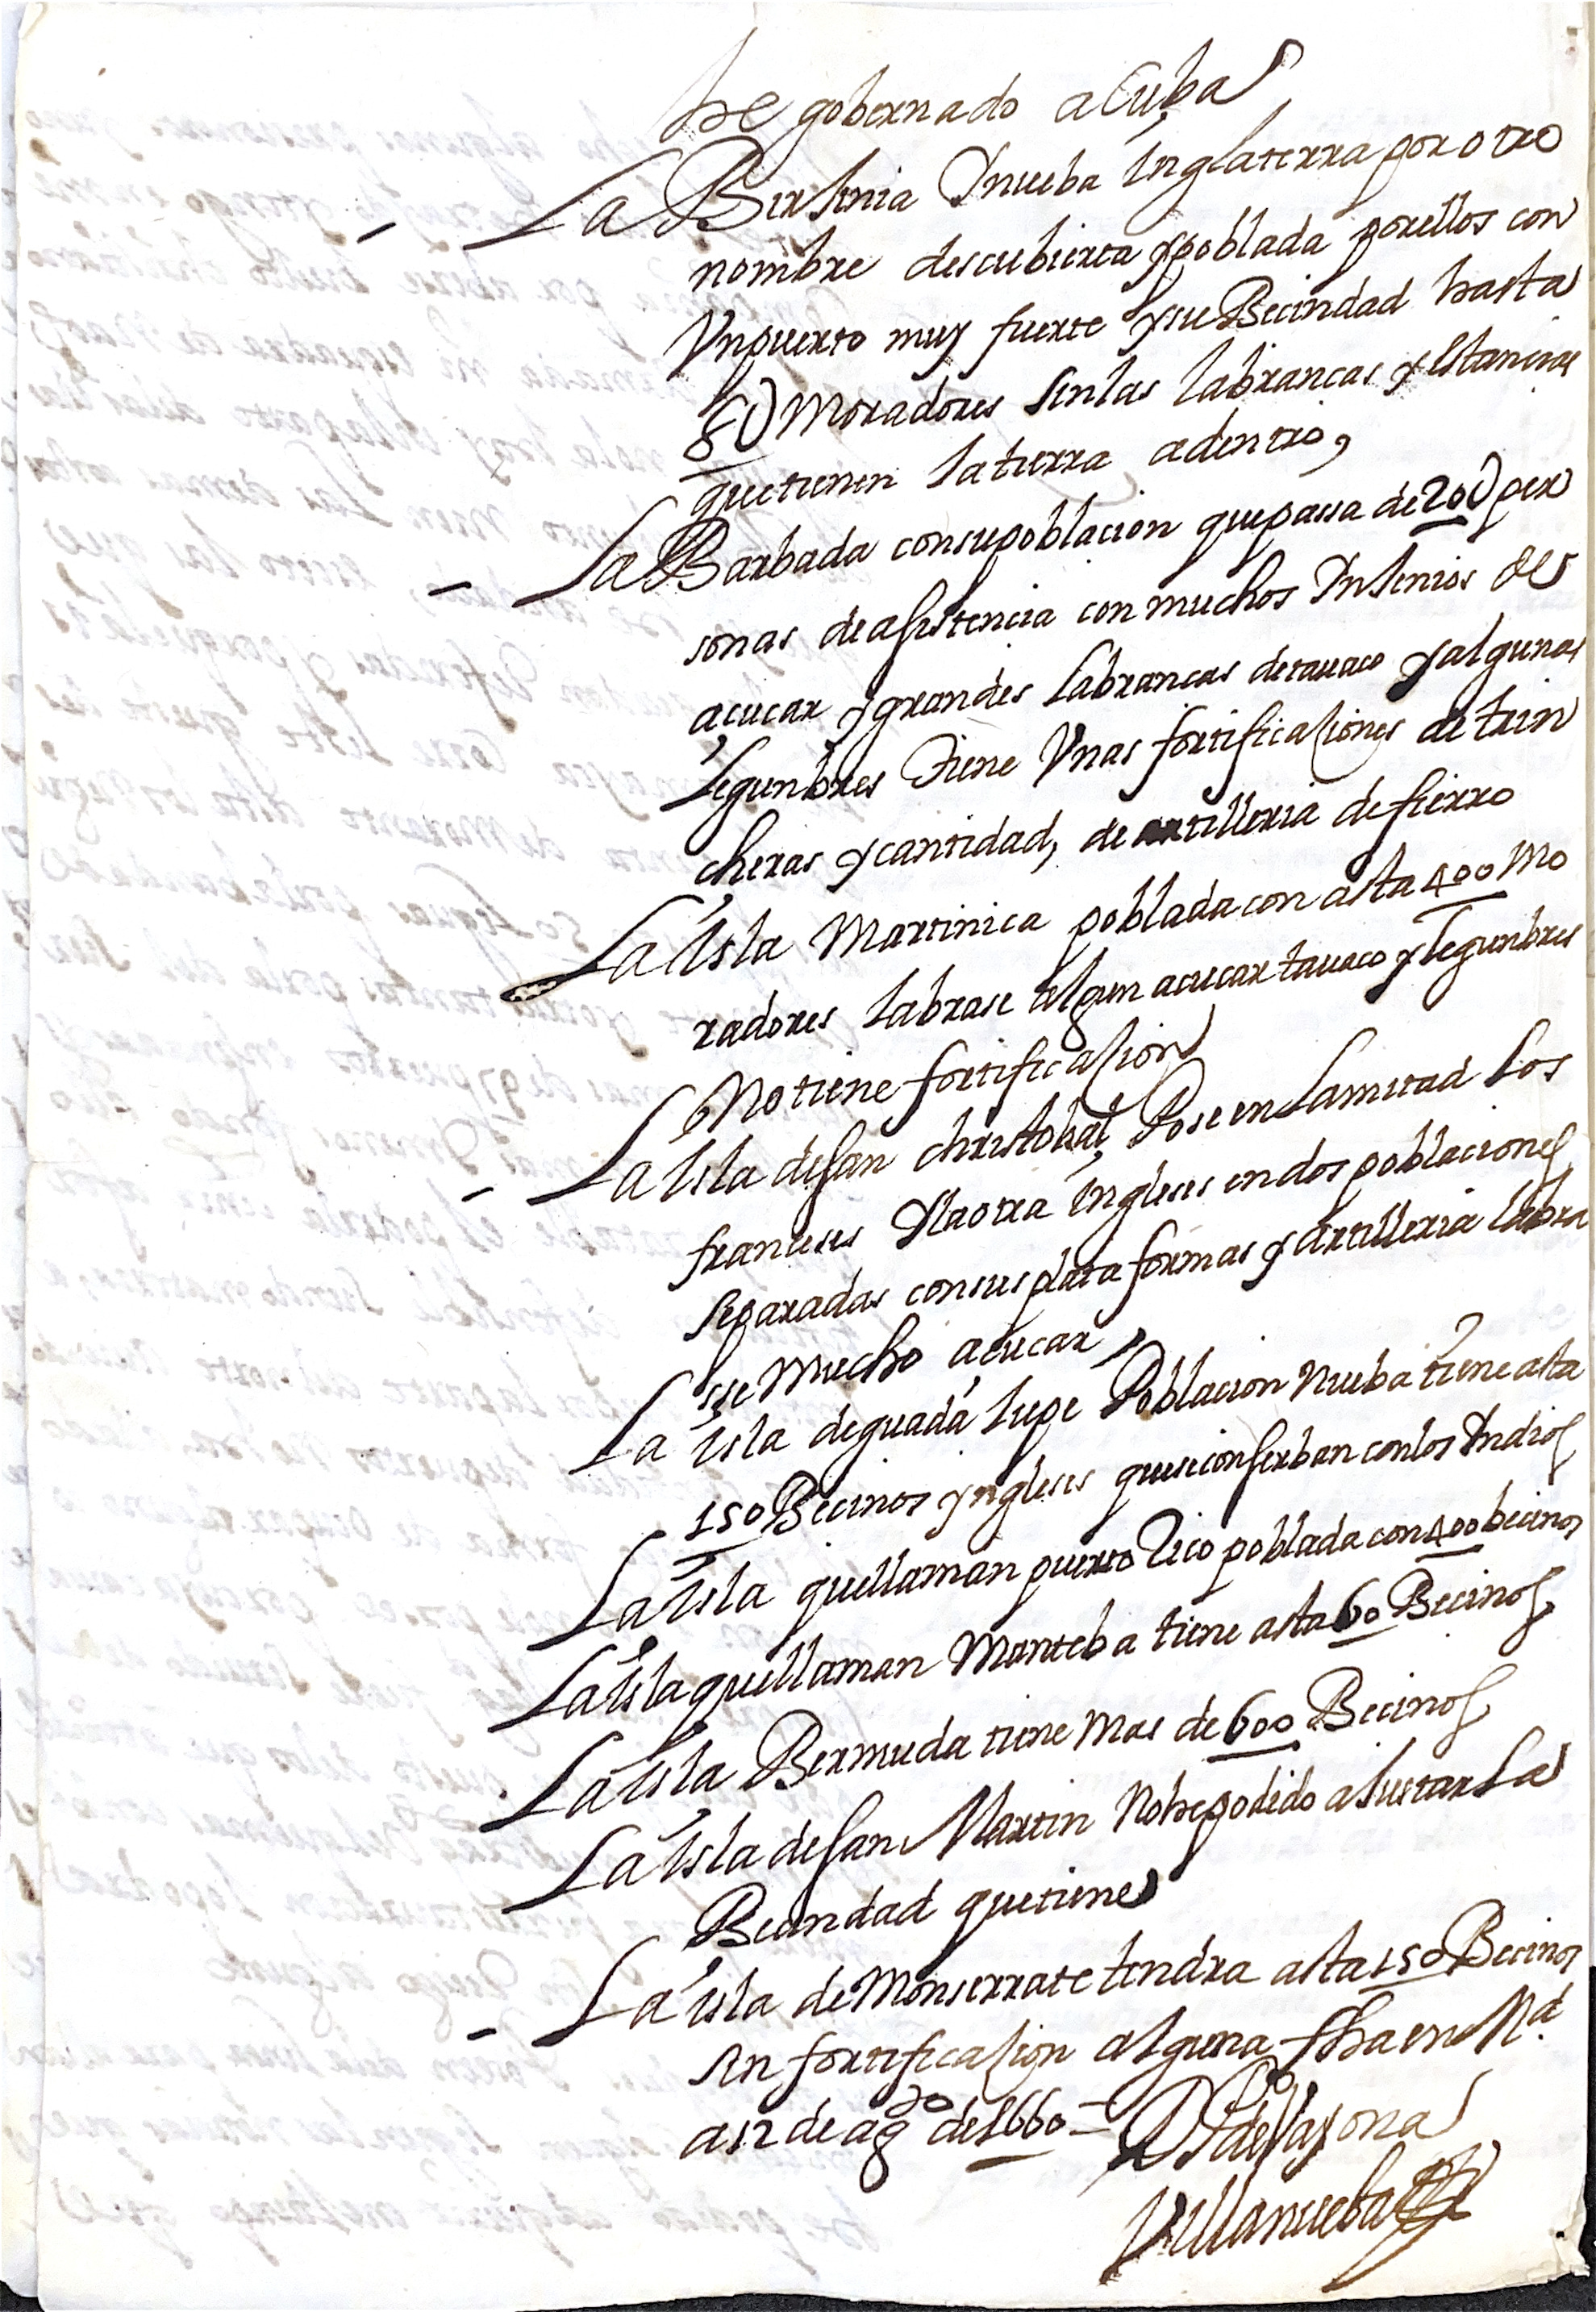 he gobernado a Cuba
La Birhinia Ynueba Inglaterra por otro
nombre descubierta y poblada por ellos con
Vn puerto muy fuerte y su Becindad hasta
8U Moradores sin las labrancas y estancias
que tienen la tierra adentro,
La Barbada con su poblacion que passa de 20U per
sonas de asistencia con muchos Inhenios de
açucar y grandes labrancas de tauaco y algunas
legunbres Tiene Vnas fortificaçiones de trin
cheras y cantidad, de artilleria de fierro
La Isla Martinica poblada con asta 400 Mo
radores labrase algun acucar tauaco y legunbres
No tiene fortificaçion
La Isla de San Christobal, Poseen la mitad los
franceses Y la otra Ingleses en dos poblaciones
separadas con sus plata formas y artilleria labra
sse Mucho açucar,
La Isla de guada lupe Poblacion Nueba tiene asta
150 Becinos yngleses que se conserban con los Indios
La Isla que llaman puerto Rico poblada con 400 becinos
La Isla que llaman Manteba tiene asta 60 Becinos
La Isla Bermuda tiene Mas de 600 Becinos
La Isla de San Martin No he podido ajustar la
Becindad que tiene
La Isla de Monserrate tendra asta 150 Becinos
sin fortificaçion alguna fha en Md
a 12 de agto de 1660 = Po de Bayona
Villanueba